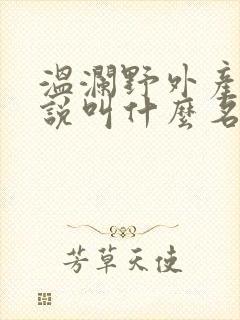 溫瀾野外產
說叫什麼名
芳草天使